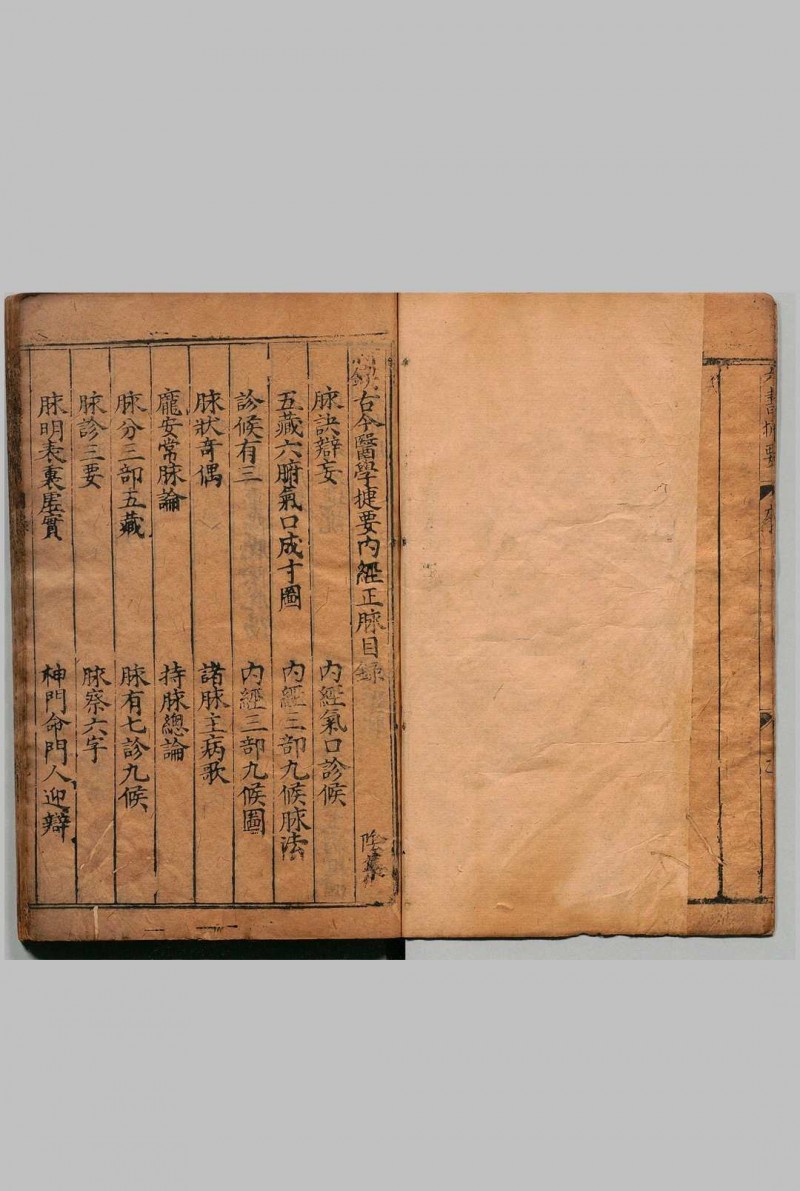 古今醫學捷要內經正脉目錄
脉訣辯妄 內經氣口診候
五藏六腑氣口成寸圖 內經三部九候脉法
診候有三 內經三部九候圖
脉狀奇偶 諸脉主病歌
龐安常脉論 持脉總論
脉分三部五藏 脉有七診九候
脉診三要 脉察六字
脉明表裏虛實 神門命門人迎辯